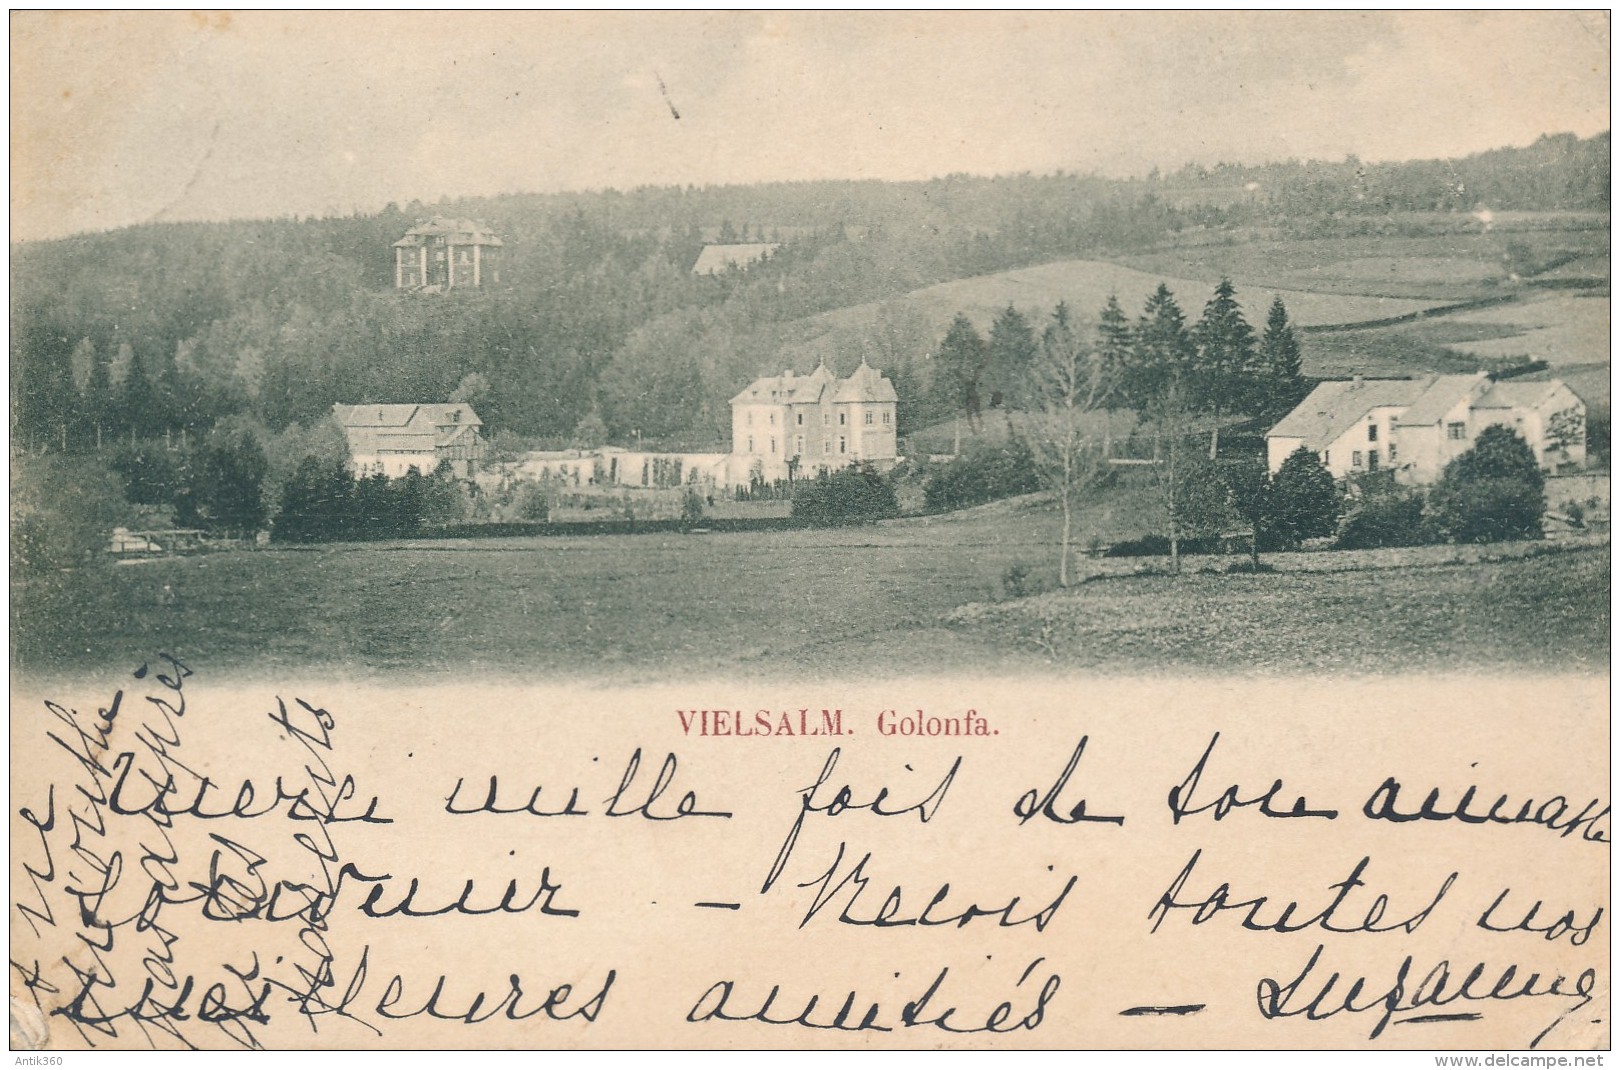 VIELSALM. Golonfa.
merci mille fois de ton aimable
souvenir – Recois toutes nos
meilleures amitiés – Suzanne.
ne m'oublie
pas auprès
des
Antik360
www.delcampe.net